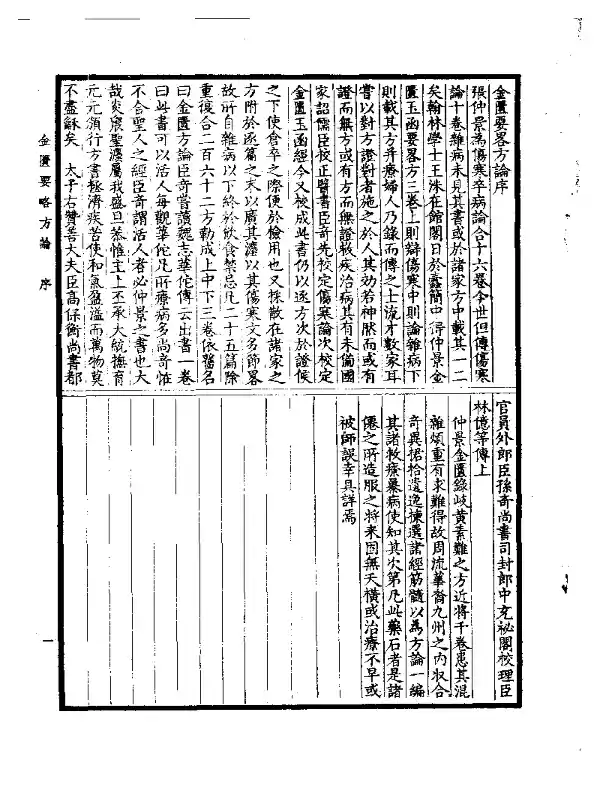 金匱要畧方論序
張仲景為傷寒卒病論合十六卷今世但傳傷寒
論十卷雜病未見其書或於諸家方中載其一二
矣翰林學士王洙在館閣日於蠹簡中得仲景金
匱玉函要畧方三卷上則辯傷寒中則論雜病下
則載其方并療婦人乃錄而傳之士流才數家耳
嘗以對方證對者施之於人其効若神然而或有
證而無方或有方而無證救疾治病其有未備國
家詔儒臣校正醫書臣奇先校定傷寒論次校定
金匱玉函經今又校成此書仍以逐方次於證候
之下使倉卒之際便於檢用也又採散在諸家之
方附於逐篇之末以廣其灋以其傷寒文多節畧
故所自雜病以下終於飲食禁忌凡二十五篇除
重復合二百六十二方勒成上中下三卷依舊名
曰金匱方論臣奇嘗讀魏志華佗傳云出書一卷
曰此書可以活人每觀華佗凡所療病多尚奇怪
不合聖人之經臣奇謂活人者必仲景之書也大
哉炎農聖灋屬我盛旦恭惟主上丕承大統撫育
元元頒行方書拯濟疾苦使和氣盈溢而萬物莫
不盡龢矣 太子右贊善大夫臣高保衡尚書都
官員外郎臣孫奇尚書司封郎中充祕閣校理臣
林億等傳上
仲景金匱錄岐黃素難之方近將千卷患其混
雜煩重有求難得故周流華裔九州之內收合
奇異捃拾遺逸揀選諸經筋髓以為方論一編
其諸救療暴病使知其次第凡此藥石者是諸
僊之所造服之將來固無夭橫或治療不早或
被師誤幸具詳焉
金匱要略方論 序
一